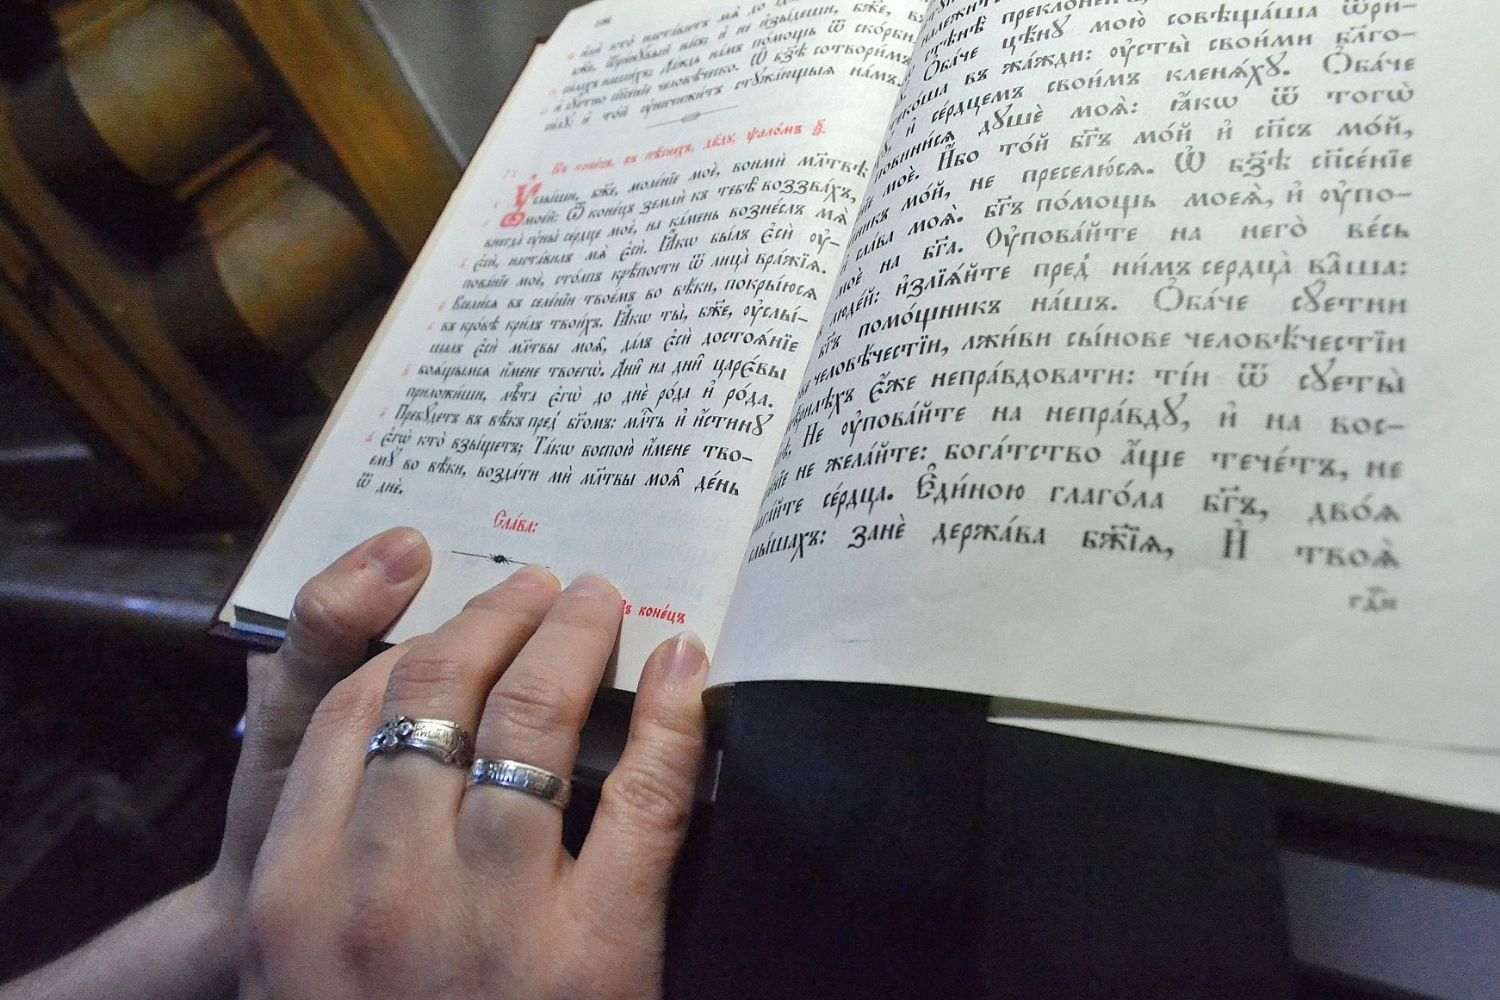 и҆лѝ кто̀ наста́витъ мѧ̀ до
бж҃е, ѿри́нꙋвый на́съ; и҆ не и҆зы́деши, бж҃е, въ
си́лахъ на́шихъ; Да́ждь на́мъ по́мощь ѿ ско́рби
и҆ сꙋ́етно спⷭ҇нїе человѣ́ческо. Ѡ҆ бз҃ѣ сотвори́мъ
си́лꙋ: и҆ то́й ᲂу҆ничижи́тъ стꙋжа́ющыѧ на́мъ.
Въ коне́цъ, въ пѣ́снехъ, дв҃дꙋ, ѱало́мъ ѯ҃.
Оу҆слы́ши, бж҃е, моле́нїе моѐ, вонмѝ мл҃твѣ
мое́й: Ѿ коне́цъ землѝ къ тебѣ̀ воззва́хъ,
внегда̀ ᲂу҆ны̀ се́рдце моѐ, на ка́мень возне́слъ мѧ̀
є҆сѝ, наста́вилъ мѧ̀ є҆сѝ. Ꙗ҆́кѡ бы́лъ є҆сѝ ᲂу҆-
пова́нїе моѐ, сто́лпъ крѣ́пости ѿ лица̀ вра́жїѧ.
Вселю́сѧ въ селе́нїи твое́мъ во вѣ́ки, покры́юсѧ
въ кро́вѣ кри́лъ твои́хъ. Ꙗ҆́кѡ ты̀, бж҃е, ᲂу҆слы́-
шалъ є҆сѝ мл҃твы моѧ̑, да́лъ є҆сѝ достоѧ́нїе
боѧ́щымсѧ и҆́мене твоегѡ̀. Дни̑ на дни̑ царє́вы
приложи́ши, лѣ̑та є҆гѡ̀ до днѐ ро́да и҆ ро́да.
Пребꙋ́детъ въ вѣ́къ пред̾ бг҃омъ: млⷭ҇ть и҆ и҆́стинꙋ
є҆гѡ̀ кто̀ взы́щетъ; Та́кѡ воспою̀ и҆́мени тво-
емꙋ̀ во вѣ́ки, возда́ти мѝ мл҃твы моѧ̑ де́нь
ѿ днѐ.
Сла́ва:
Въ коне́цъ
стѣ́нѣ преклоне́нѣ
Ѻ҆ба́че цѣ́нꙋ мою̀ совѣща́ша ѿри́-
въ жа́жди: ᲂу҆сты̀ свои́ми бл҃го-
и҆ се́рдцемъ свои́мъ кленѧ́хꙋ. Ѻ҆ба́че
повини́сѧ дꙋшѐ моѧ̀: ꙗ҆́кѡ ѿ тогѡ̀
моѐ. И҆́бо то́й бг҃ъ мо́й и҆ сп҃съ мо́й,
мо́й, не преселю́сѧ. Ѡ҆ бз҃ѣ спⷭ҇нїе
и҆ сла́ва моѧ̀: бг҃ъ по́мощи моеѧ̀, и҆ ᲂу҆по-
моѐ на бг҃а. Оу҆пова́йте на него̀ ве́сь
люде́й: и҆злїѧ́йте пред̾ ни́мъ сердца̀ ва̑ша:
бг҃ъ помо́щникъ на́шъ. Ѻ҆ба́че сꙋ́етни
человѣ́честїи, лжи́ви сы́нове человѣ́честїи
въ мѣ́рилѣхъ є҆́же непра́вдовати: ті́и ѿ сꙋеты̀
Не ᲂу҆пова́йте на непра́вдꙋ, и҆ на вос-
не жела́йте: бога́тство а҆́ще тече́тъ, не
прилага́йте се́рдца. Є҆ди́ною глаго́ла бг҃ъ, двоѧ̑
слы́шахъ: занѐ держа́ва бж҃їѧ, И҆ твоѧ̀
гдⷭ҇и